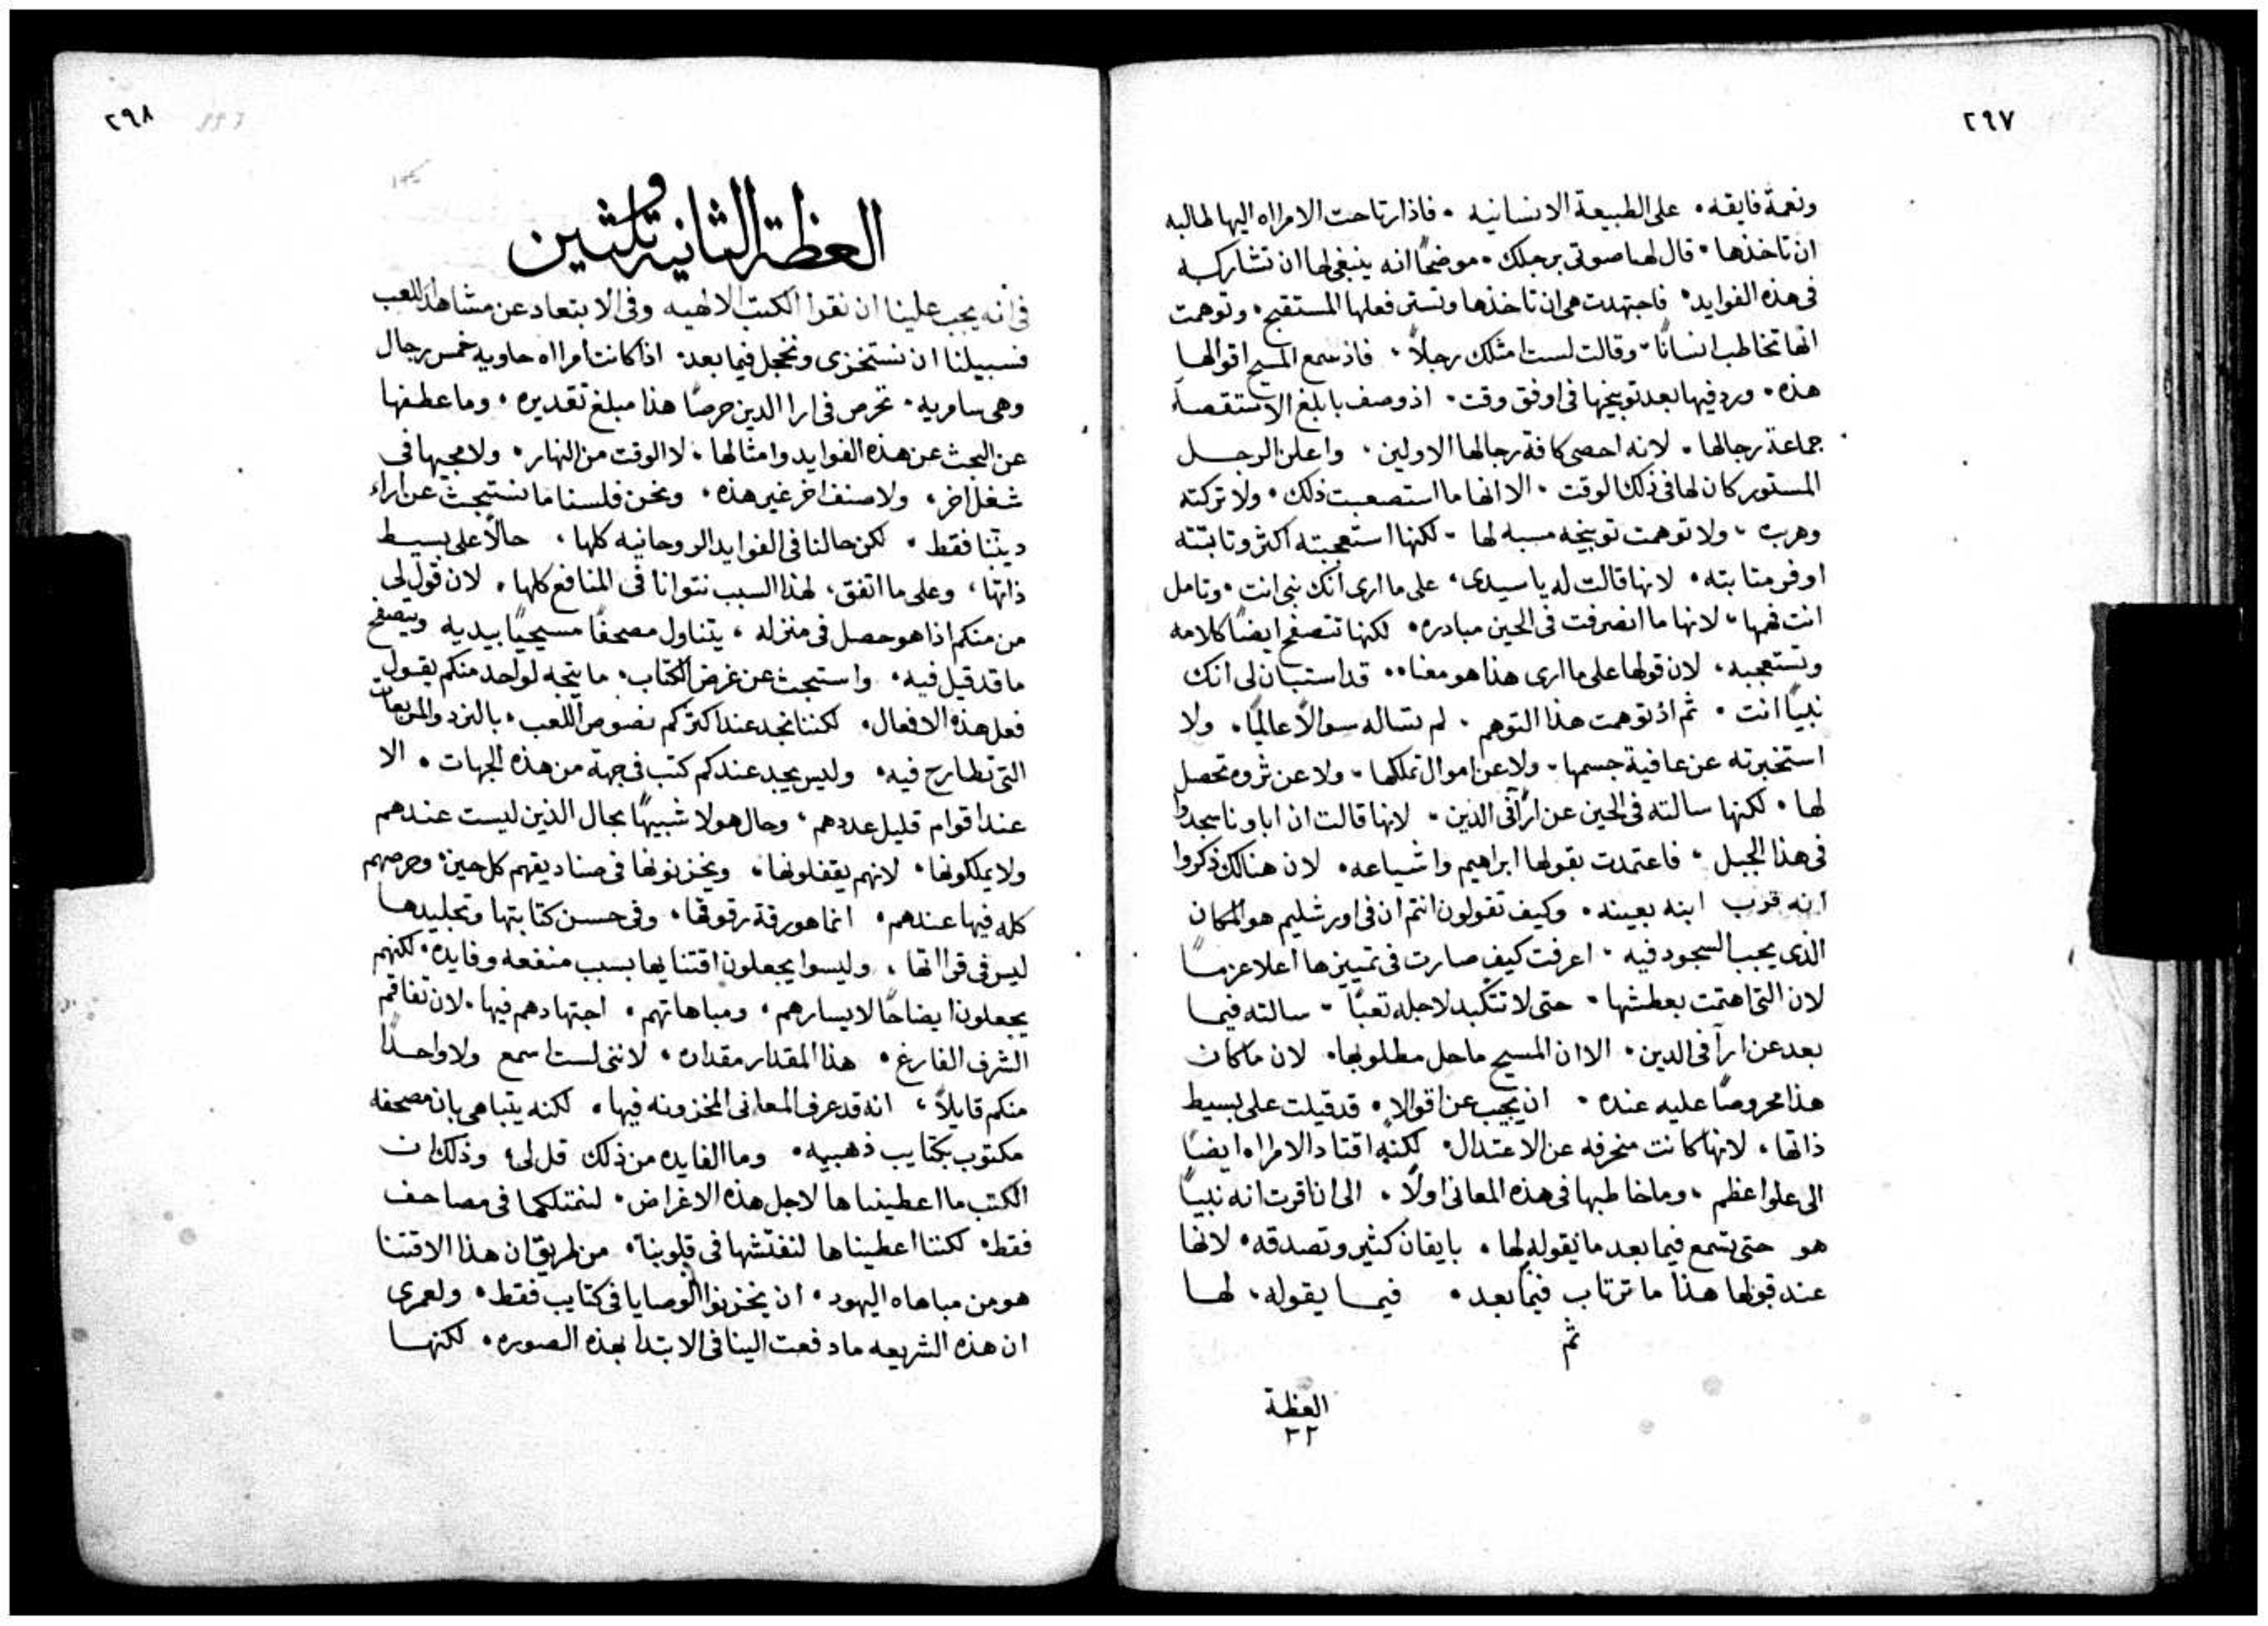 ٢٩٧
ونعمة فايقه. على الطبيعة الانسانيه. فاذ ارتاحت الامراه اليها طالبه
ان تاخذها. قال لها صوتي برجلك. موضحًا انه ينبغي لها ان تشاركه
في هذه الفوايد. فاجتهدت هي ان تاخذها وتستر فعلها المستقبح. وتوهمت
انها تخاطب انسانًا. وقالت لست امتلك رجلاً. فاذ سمع المسيح اقوالها
هذه. ورد فيها بعد توبيخها في اوفق وقت. اذ وصف بابلغ الاستقصآ
جماعة رجالها. لانه احصى كافة رجالها الاولين. واعلن الرجل
المستور كان لها في ذلك الوقت. الا انها ما استصعبت ذلك. ولا تركته
وهربت. ولا توهمت توبيخه مسبه لها. لكنها استعجبته اكثر وثابتته
اوفر مثابته. لانها قالت له يا سيدي. على ما ارى انك نبي انت. وتامل
انت فهمها. لانها ما انصرفت في الحين مبادره. لكنها تتصفح ايضًا كلامه
وتستعجبه. لان قولها على ما ارى هذا هو معناه. قد استبان لي انك
نبيًا انت. ثم اذ توهمت هذا التوهم. لم تساله سوالاً عالميًا. ولا
استخبرته عن عافية جسمها. ولا عن اموال تملكها. ولا عن ثروه تحصل
لها. لكنها سالته في الحين عن ارآ في الدين. لانها قالت ان اباونا سجدوا
في هذا الجبل. فاعتمدت بقولها ابراهيم واشياعه. لان هنالك ذكروا
انه قرب ابنه بعينه. وكيف تقولون انتم ان في اورشليم هو المكان
الذي يجب السجود فيه. اعرفت كيف صارت في تمييزها اعلا عزمًا
لان التي اهتمت بعطشها. حتى لا تتكبد لاجله تعبًا. سالته فيما
بعد عن ارآ في الدين. الا ان المسيح ما حل مطلوبها. لان ما كان
هذا محروصًا عليه عنده. ان يجيب عن اقوالا. قد قيلت على بسيط
ذاتها. لانها كانت منحرفه عن الاعتدال. لكنه اقتاد الامراه ايضًا
الى علو اعظم. وما خاطبها في هذه المعاني اولاً. الى ان اقرت انه نبيًا
هو حتى تسمع فيما بعد ما يقوله لها. بايقان كثير وتصدقه. لانها
عند قبولها هذا ما ترتاب فيما بعد. فيما يقوله. لها
تم
العظة
٣٢
٢٩٨
العظة الثانيه وثلثين
في انه يجب علينا ان نقرا الكتب الالهيه وفي الابتعاد عن مشاهد اللعب
فسبيلنا ان نستخزى ونخجل فيما بعد. اذ كانت امراه حاويه خمس رجال
وهي سامريه. تحرص في ارا الدين حرصًا هذا مبلغ تقديره. وما عطفها
عن البحث عن هذه الفوايد وامثالها. لا الوقت من النهار. ولا مجيها في
شغل اخر. ولا صنف اخر غير هذه. ونحن فلسنا ما نستبحث عن اراء
ديننا فقط. لكن حالنا في الفوايد الروحانيه كلها. حالاً على بسيط
ذاتها. وعلى ما اتفق. لهذا السبب نتوانا في المنافع كلها. لان قول لي
من منكم اذا هو حصل في منزله. يتناول مصحفًا مسيحيًا بيديه ويتصفح
ما قد قيل فيه. واستبحث عن غرض الكتاب. ما يتجه لواحد منكم يقول
فعل هذه الافعال. لكننا نجد عند اكثركم نصوص اللعب. بالنرد والمربعات
التي تطارح فيه. وليس يجد عندكم كتب في جهة من هذه الجهات. الا
عند اقوام قليل عددهم. وحال هولا شبيهًا بحال الذين ليست عندهم
ولا يملكونها. لانهم يقفلونها. ويخزنونها في صناديقهم كل حين. وحرصهم
كله فيها عندهم. انما هو رقة رقوقها. وفي حسن كتابتها وتجليدها
ليس في قرااتها. وليسوا يجعلون اقتنايها بسبب منفعه وفايده. لكنهم
يجعلون ايضاحًا لايسارهم. ومباهاتهم. اجتهادهم فيها. لان تفاقم
الشرف الفارغ. هذا المقدار مقداره. لانني لست اسمع ولا واحدًا
منكم قايلاً. انه قد عرف المعاني المخزونه فيها. لكنه يتباهى بان مصحفه
مكتوب بكتايب ذهبيه. وما الفايده من ذلك قل لي. وذلك ان
الكتب ما اعطيناها لاجل هذه الاغراض. لنمتلكها في مصاحف
فقط. لكننا اعطيناها لنفتشها في قلوبنا. من طريق ان هذا الاقتنا
هو من مباهاه اليهود. ان يخزنوا الوصايا في كتايب فقط. ولعمري
ان هذه الشريعه ما دفعت الينا في الابتدا بهذه الصوره. لكنها